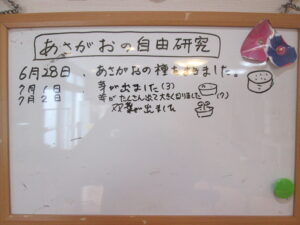 あさがおの自由研究
6月28日、あさがおの種をまきました。
7月1日 芽が出ました(3)
7月2日 芽がたくさん出て大きくなりました(7)
双葉が出ました